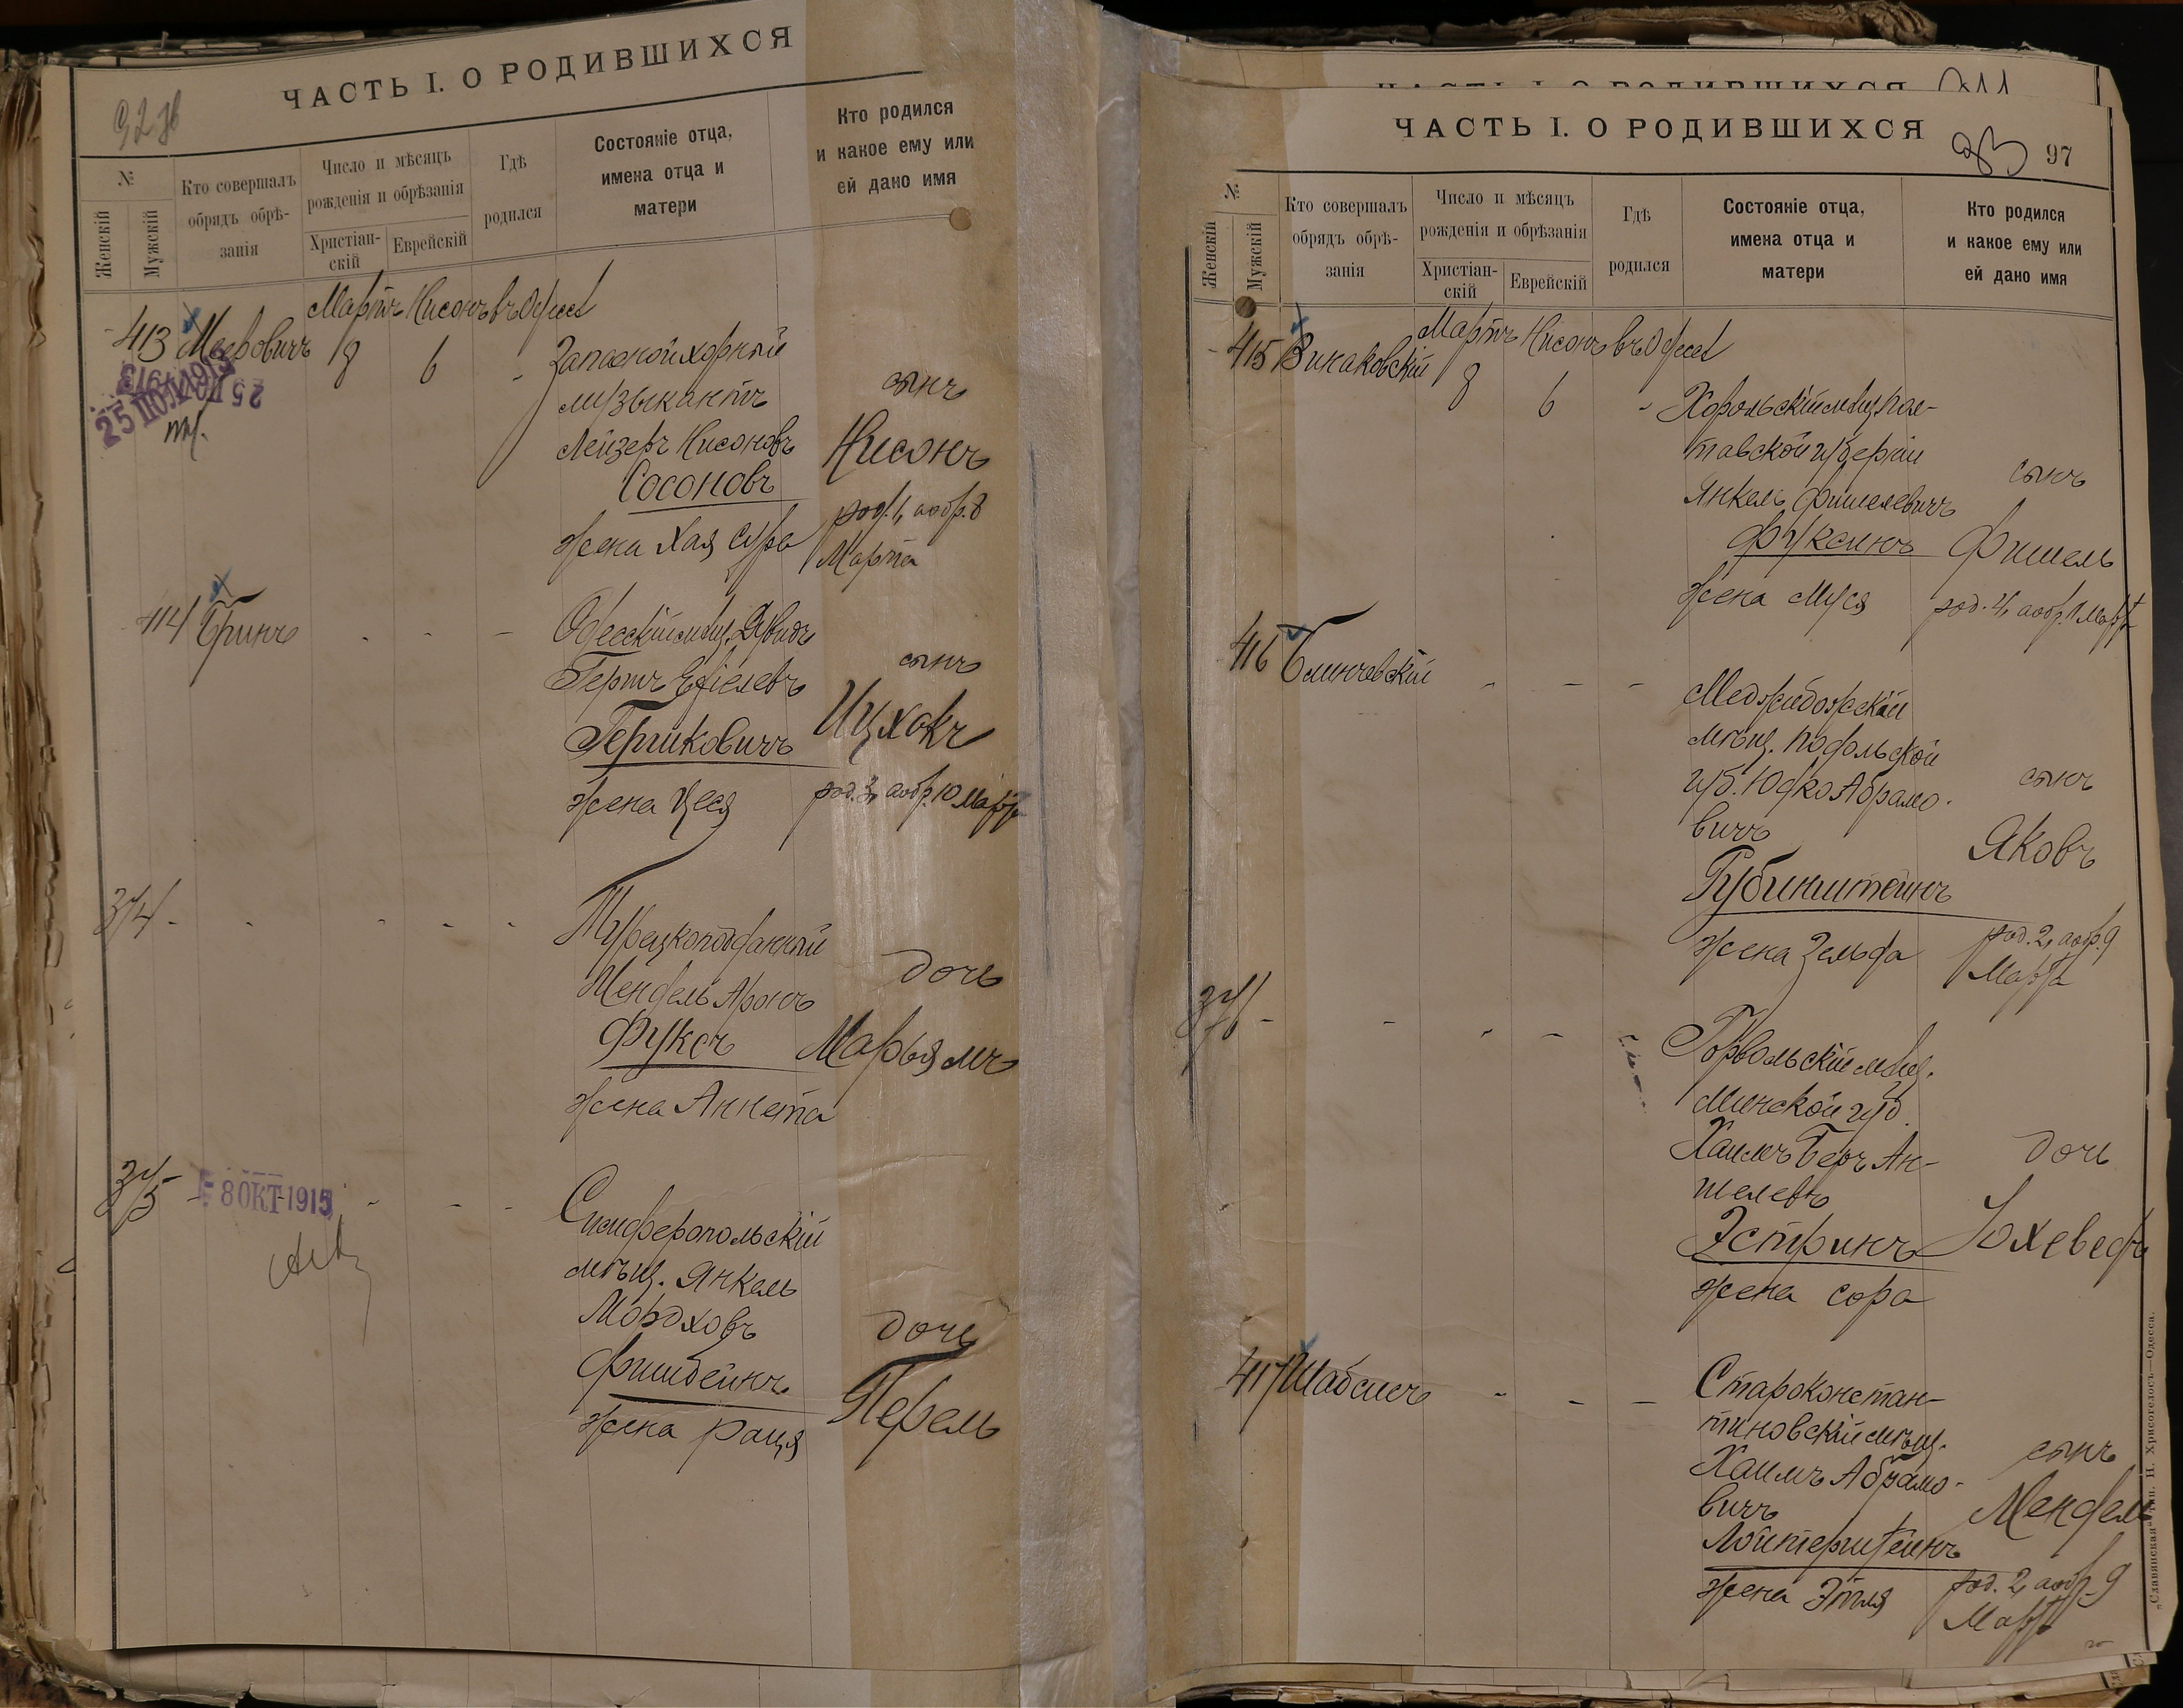 ЧАСТЬ I. О РОДИВШИХСЯ
№
Женскій
Мужскій
Кто совершалъ
обрядъ обрѣ-
занія
Число и мѣсяцъ
рожденія и обрѣзанія
Христіан-
скій
Еврейскій
Гдѣ
родился
Состояніе отца,
имена отца и
матери
Кто родился
и какое ему или
ей дано имя
Мартъ Нисонъ въ Одессѣ
413 Мееровичъ 8 6
25 1913
Запасной хорный
музыкантъ
Лейзеръ Нисоновъ
Сосоновъ
жена Хая Сура
сынъ
Нисонъ
род. 1, а обр. 8
Марта
414 Гринъ
Одесскій мѣщ. Дувидъ
Гершъ
Гершковичъ
жена Цеся
сынъ
Ицхокъ
род. 3, а обр. 10 Марта
374
Турецкоподданный
Мендель Аронъ
Фуксъ
жена Аннета
дочь
Марьямъ
375
8 ОКТ 1915
Симферопольскій
мѣщ. Янкель
Мордховъ
Фишбейнъ
жена Рация
дочь
Перель
ЧАСТЬ I. О РОДИВШИХСЯ
97
№
Женскій
Мужскій
Кто совершалъ
обрядъ обрѣ-
занія
Число и мѣсяцъ
рожденія и обрѣзанія
Христіан-
скій
Еврейскій
Гдѣ
родился
Состояніе отца,
имена отца и
матери
Кто родился
и какое ему или
ей дано имя
Мартъ Нисонъ въ Одессѣ
415 Винаковскій 8 6
Хорольскій мѣщ. Пол-
тавской губерніи
Янкель Фишелевичъ
Фуксинъ
жена Муся
сынъ
Фишель
род. 4, а обр. 11 Марта
416 Блинчевскій
Меджибожскій
мѣщ. Подольской
губ. Юдко Абрамо-
вичъ
Рубинштейнъ
жена Зельда
сынъ
Яковъ
род. 2, а обр. 9
Марта
376
Горвольскій мѣщ.
Минской губ.
Хаимъ Беръ Ан-
шелевъ
Эстринъ
жена Сора
дочь
Іохеведъ
417 Шабсисъ
Староконстан-
тиновскій мѣщ.
Хаимъ Абрамо-
вичъ
Лойтерштейнъ
жена Этля
сынъ
Мендель
род. 2, а обр. 9
Марта
„Славянская“ тип. Н. Хрисогелосъ—Одесса.